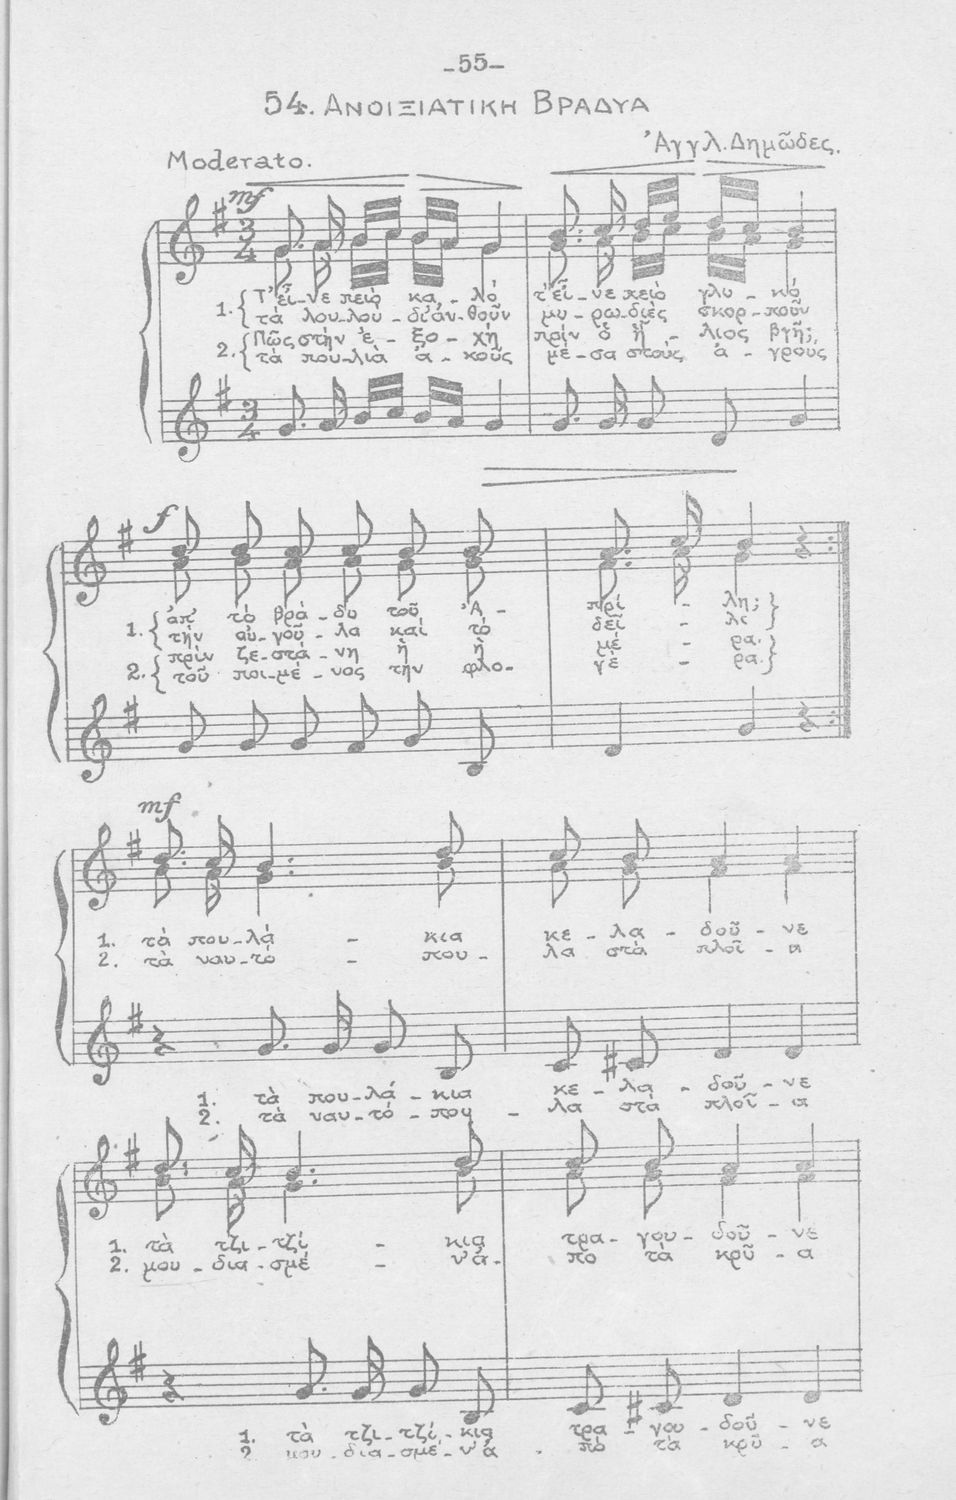 -55-
54. ΑΝΟΙΞΙΑΤΙΚΗ ΒΡΑΔΥΑ
Ἀγγλ. Δημῶδες.
Moderato.
mf
1. Τ' εἶ-νε πειὸ κα-λὸ τ' εἶ-νε πειὸ γλυ-κὸ
τὰ λου-λου-δι' ἀν-θοῦν μυ-ρω-διὲς σκορ-ποῦν
2. Πῶς στὴν ἐ-ξο-χὴ πρὶν ὁ ἥ-λιος βγῇ;
τὰ που-λιὰ ἀ-κοῦς μέ-σα στοὺς ἀ-γρούς,
f
1. ἀπ' τὸ βρά-δυ τοῦ Ἀ-πρί-λη;
τὴν αὐ-γοῦ-λα καὶ τὸ δεῖ-λι
2. πρὶν ζε-στά-νη ἡ ἡ-μέ-ρα.
τοῦ ποι-μέ-νος τὴν φλο-γέ-ρα.
mf
1. τὰ που-λά-κια κε-λα-δοῦ-νε
2. τὰ ναυ-τό-που-λα στὰ πλοῖ-α
1. τὰ που-λά-κια κε-λα-δοῦ-νε
2. τὰ ναυ-τό-που-λα στὰ πλοῖ-α
1. τὰ τζι-τζί-κια τρα-γου-δοῦ-νε
2. μου-δια-σμέ-ν' ἀ-πὸ τὰ κρῦ-α
1. τὰ τζι-τζί-κια τρα-γου-δοῦ-νε
2 μου-δια-σμέ-ν' ἀ-πὸ τὰ κρῦ-α